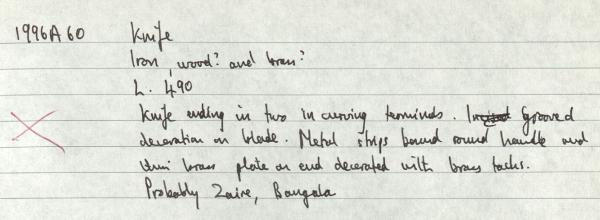 1996A60 Knife
Iron, wood? and brass?
L. 490
Knife ending in two in curving terminals. Incised Grooved
decoration on blade. Metal strips bound round handle and
thin brass plate on end decorated with brass tacks.
Probably Zaire, Bangala